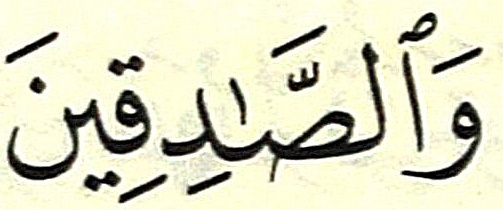 وَٱلصَّـٰدِقِينَ